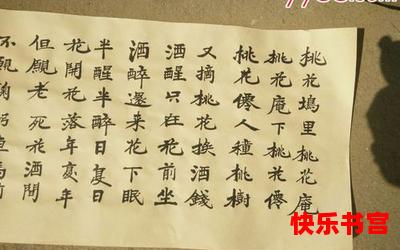 桃花塢里桃花庵
桃花庵下桃花僊
桃花僊人種桃樹
又摘桃花换酒錢
酒醒只在花前坐
酒醉還来花下眠
半醒半醉日复日
花開花落年复年
但願老死花酒間
不願鞠躬車馬前
快乐书宫